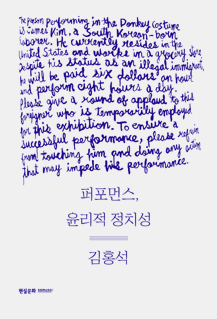 The person performing in the Donkey Costume
is James Kim, a South Korean-born
laborer. He currently resides in the
United States and works in a grocery store
despite his status as an illegal immigrant.
He will be paid six dollars an hour
and perform eight hours a day.
Please give a round of applaud to this
foreigner who is temporarily employed
for this exhibition. To ensure a
successful performance, please refrain
from touching him and doing any action
that may impede his performance.
퍼포먼스,
윤리적 정치성
김홍석
현실문화